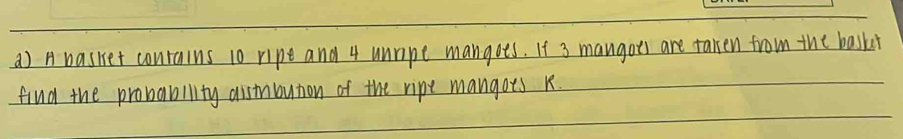 a) A basket contains 10 ripe and 4 unripe mangoes. If 3 mangoes are taken from the basket
find the probability distribution of the ripe mangoes K.